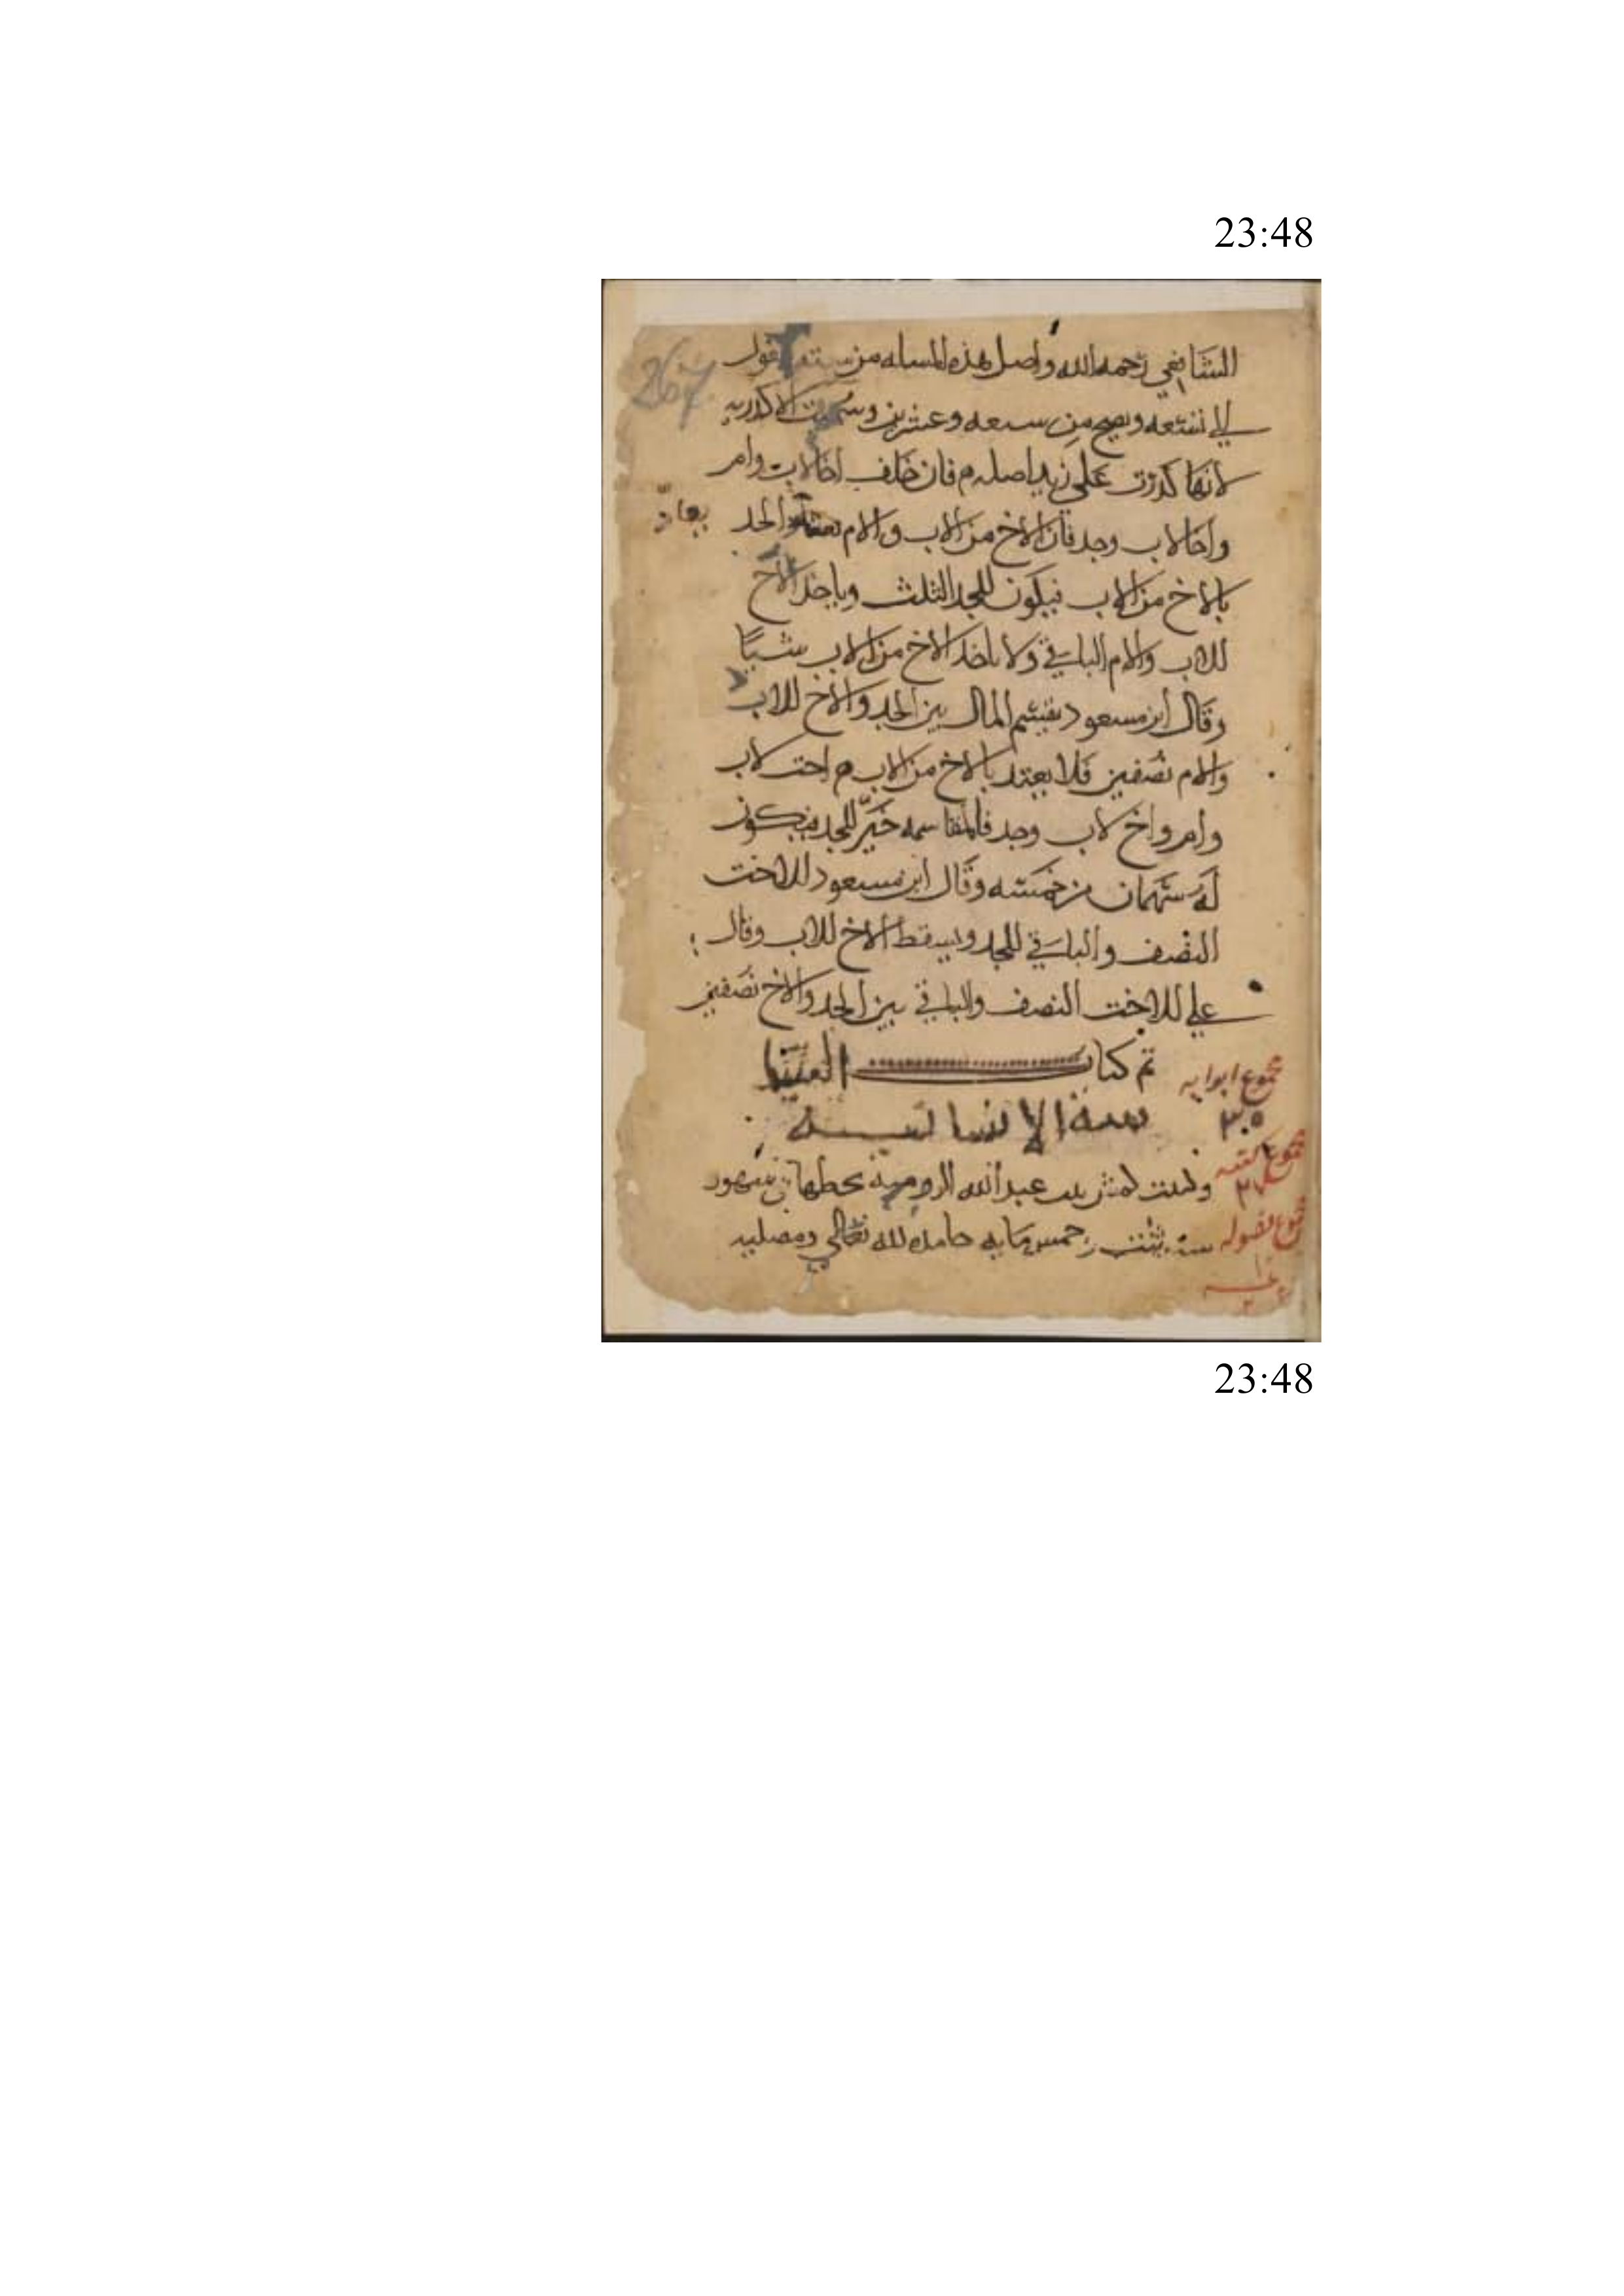 23:48
267
الشافعي رحمه الله واصل هذه المسله من سته تعول
الي تسعه وتصح من سبعه وعشرين وسميت الاكدريه
لانها كدرت على زيد اصله م فان خلف اخا لاب وام
واخا لاب وجد فان الاخ من الاب والام الجد
يعاد
بالاخ من الاب فيكون للجد الثلث وياخذ الاخ
للاب والام الباقي ولا ياخذ الاخ من الاب شيئا
وقال ابن مسعود يقسم المال بين الجد والاخ للاب
والام نصفين فلا يعتد بالاخ من الاب م اخت لاب
وام واخ لاب وجد فالمقاسمه خير للجد فيكون
له سهمان من خمسه وقال ابن مسعود للاخت
النصف والباقي للجد ويسقط الاخ للاب وقال
علي للاخت النصف والباقي بين الجد والاخ نصفين
تم كتاب
مجموع ابوابه
٣٠٥
مجموع كتبه
وكتبت بنت عبد الله الروميه بخطها في شهور
مجموع فصوله
سنه وخمس مايه حامده لله تعالى ومصليه
23:48